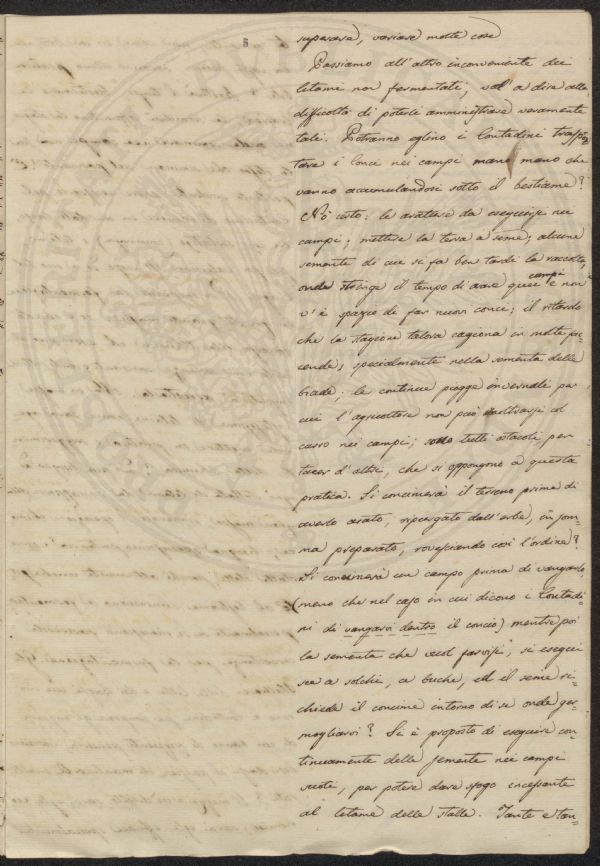 superare, variare molte cose
Passiamo all'altro inconveniente dei
letami non fermentati; val'a dire alla
difficoltà di poterli amministrare veramente
tali. Potranno eglino i Contadini trasspor
tare i conci nei campi mano mano che
vanno accumulandosi sotto il bestiame?
Nò certo: le arature da eseguirsi nei
campi; mettere la terra a seme; alcune
semente di cui si fa ben tarda la raccolta,
onde stringe il tempo di arare quei campi e non
v'è spazio di far nuovi conci; il ritardo
che la stagione talora cagiona in molte fac-
cende, specialmente nella sementa delle
biade; le continue piogge invernali per
cui l'agricoltore non può inoltrarsi col
carro nei campi; sono tutti ostacoli, per
tacer d'altri, che si oppongono a questa
pratica. Si concimerà il terreno prima di
averlo arato, ripurgato dall'erbe, in som-
ma preparato, rovesciando così l'ordine?
Si concimerà un campo prima di vangarlo,
(meno che nel caso in cui dicono i Contadi-
ni di vangarvi dentro il concio) mentre poi
la sementa che vuol farvisi, si esegui
sce a solchi, a buche, ed il seme ri-
chiede il concime intorno di se onde ger-
mogliarvi? Si è proposto di eseguire con-
tinuamente delle semente nei campi
vuoti, per potere dare sfogo incessante
al letame delle stalle. Tante e tan-